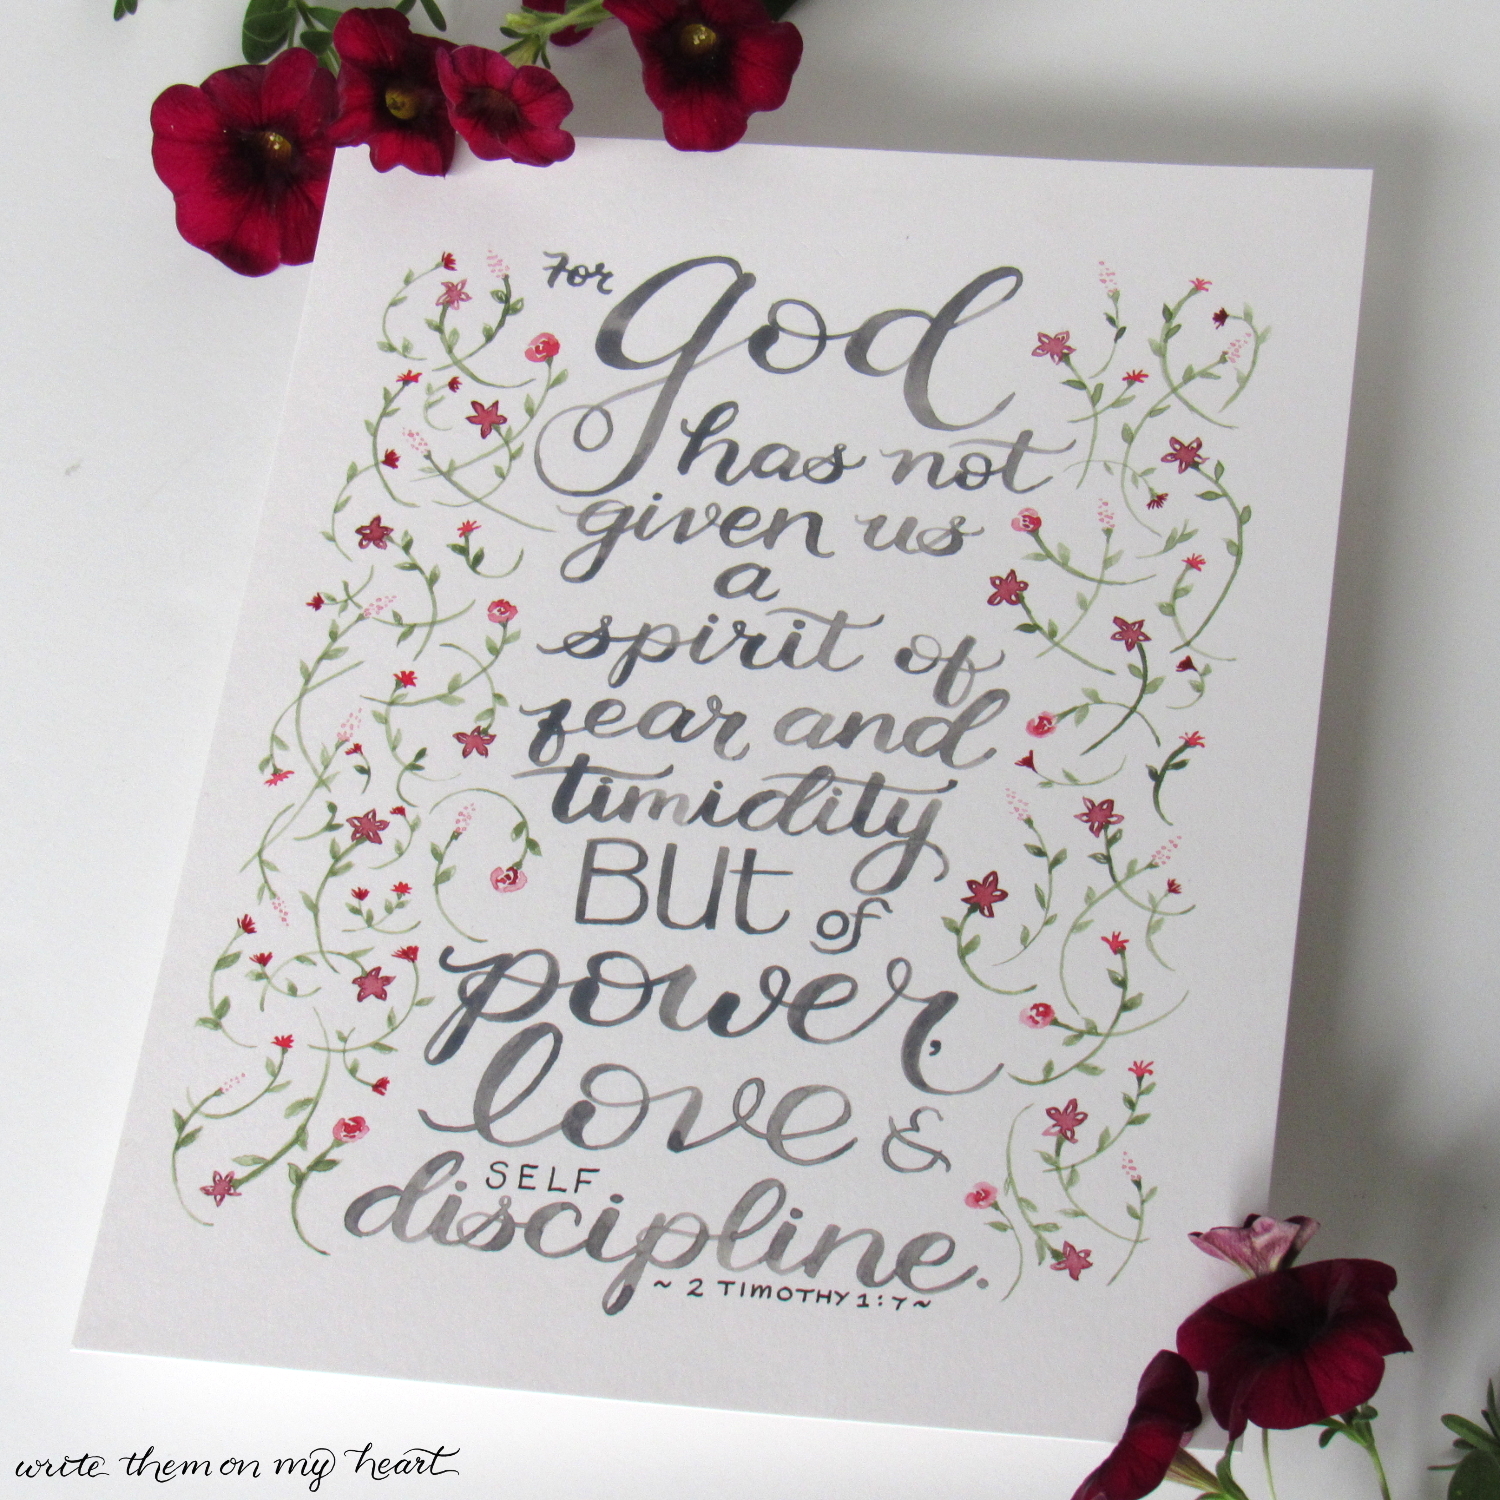 For God
has not
given us
a
spirit of
fear and
timidity
BUt of
power,
love &
SELF
discipline.
~ 2 TIMOTHY 1:7 ~
write them on my heart